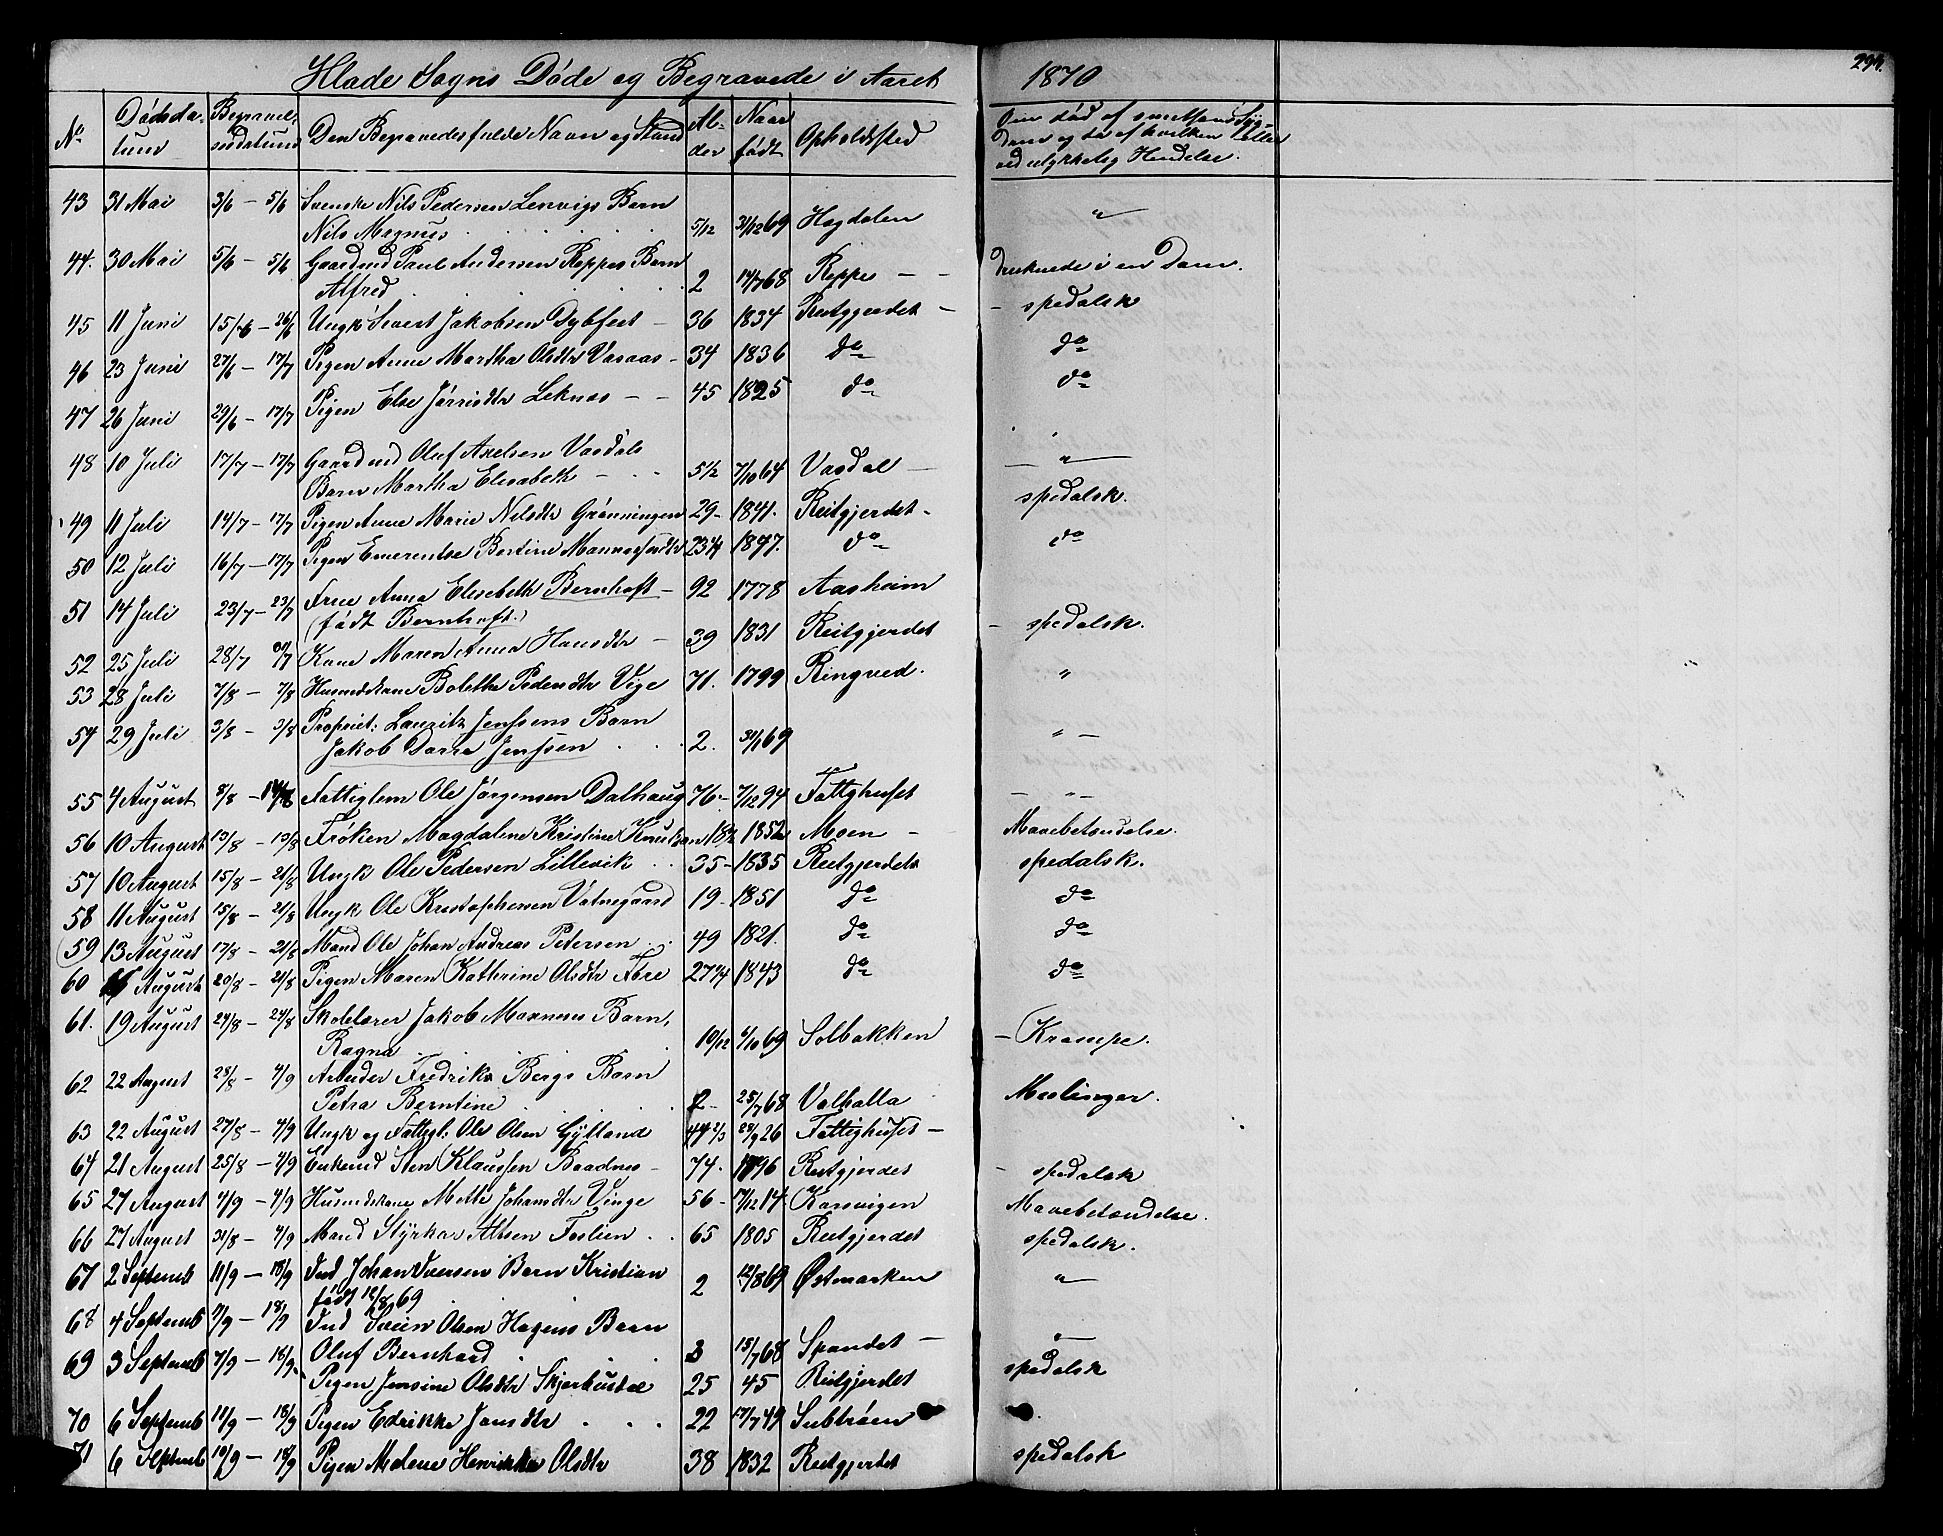 Hlade Sogns Døde og Begravede i Aaret 1870
294.
No Dødsdatum Begravelsesdatum Den Begravedes fulde Navn og Stand Alder Naar født Opholdsted Om død af smitsom Sygdom og da af hvilken eller ved ulykkelig Hændelse.
43 31 Mai 3/6 - 5/6 Svenske Nils Pedersen Lenvigs Barn
Nils Magnus 5/12 31/12 69 Hagdalen "
44. 30 Mai 5/6 - 5/6 Gaardmd Paul Andersen Reppes Barn
Alfred 2 14/7 68 Reppe - - Druknede i en Dam.
45 11 Juni 15/6 - 26/6 Ungk Sivert Jakobsen Dybfest - 36 1834 Reitgjerdet - - spedalsk
46 23 Juni 27/6 - 17/7 Pigen Anne Martha Olsdtr Vasaas - 34 1836 do do
47 26 Juni 29/6 - 17/7 Pigen Else Jørrisdtr Leknes - - 45 1825 do do
48 10 Juli 17/7 - 17/7 Gaardmd Oluf Axelsen Vasdals
Barn Martha Elisabeth - 5 1/2 7/10 64 Vasdal - "
49 11 Juli 14/7 - 17/7 Pigen Anne Marie Nilsdtr Grønningen 29 - 1841. Reitgjerdet - spedalsk.
50 12 Juli 16/7 - 17/7 Pigen Emerentse Bertine 23 1847. do do
51 14 Juli 23/7 - 23/7 Frue Anna Elisabeth Bernhoft - 92 1778 Aasheim
(født Bernhoft.)
52 25 Juli 28/7 Kone Maren Anna Hansdtr - 39 1831 Reitgjerdet - spedalsk.
53 28 Juli 7/8 - 7/8 Husmdskone Bolette Pedersdtr Vige 71. 1799 Ringved. "
54 29 Juli 3/8 - 3/8 Propriet: Lauritz Jenssens Barn
Jakob Jenssen 2. 30/1 69 " -
55 4 August 8/8 - Fattiglem Ole Jørgensen Dalhaug 76 - 7/12 94 Fattighuset - " -
56 10 August 13/8 - 13/8 Frøken Magdalene Kristine Knudtzon 1852 Moen - Mavebetændelse.
57 10 August 15/8 - 21/8 Ungk Ole Pedersen Lillevik 35 - 1835 Reitgjerdet spedalsk.
58 11 August 15/8 - 21/8 Ungk Ole Kristophersen Vatnegaard 19 - 1851 do do
59 13 August 17/8 - 21/8 Mand Ole Johan Andreas Petersen 49 1821. do do
60 August 20/8 - 21/8 Pigen Maren Kathrine Olsdtr Føre 27 1843 do do
61. 19 August 24/8 - 24/8 Skolelærer Jakob Mannes Barn,
Ragna 10/12 6/10 69 Solbakken - Krampe.
62 22 August 28/8 - 4/9 Arbeider Fredriks Bergs Barn
Petra Berntine 2 - 25/7 68 Valhalla Meslinger.
63 22 August 27/8 - 4/9 Ungk og Fattigl: Ole Olsen Gylland 44 2/3 28/9 26 Fattighuset -
64 21 August 25/8 - 4/9 Enkemd Sten Klaussen Baadnes - 74. 1796 Reitgjerdet - spedalsk
65 27 August 4/9 - 4/9 Husmdskone Mette Johansdtr Vinge 56 - 7/12 14. Korsvigen Mavebetændelse.
66 27 August 31/8 - 4/9 Mand Styrkar Atlsen Foslien 65 1805 Reitgjerdet spedalsk.
67 2 Septemb 11/9 - 18/9 Ind Johan Iversen Barn Kristian
født 12/8 69 2 12/8 69 Østmarken "
68 4 Septemb 7/9 - 18/9 Ind Svein Olsen Hagens Barn
Oluf Bernhard 3 15/7 68 Spandet - "
69 3 Septemb 7/9 - 18/9. Pigen Jensine Olsdtr Skjerhusdal 25 45 Reitgjerdet spedalsk
70 6 Septemb 11/9 - 18/9 Pigen Edrikke Jansdtr 22 17/7 49 Subtrøen
71 6 Septemb 10/9 - 18/9 Pigen Malene Henrikke Olsdtr 38 1832 Reitgjerdet spedalsk